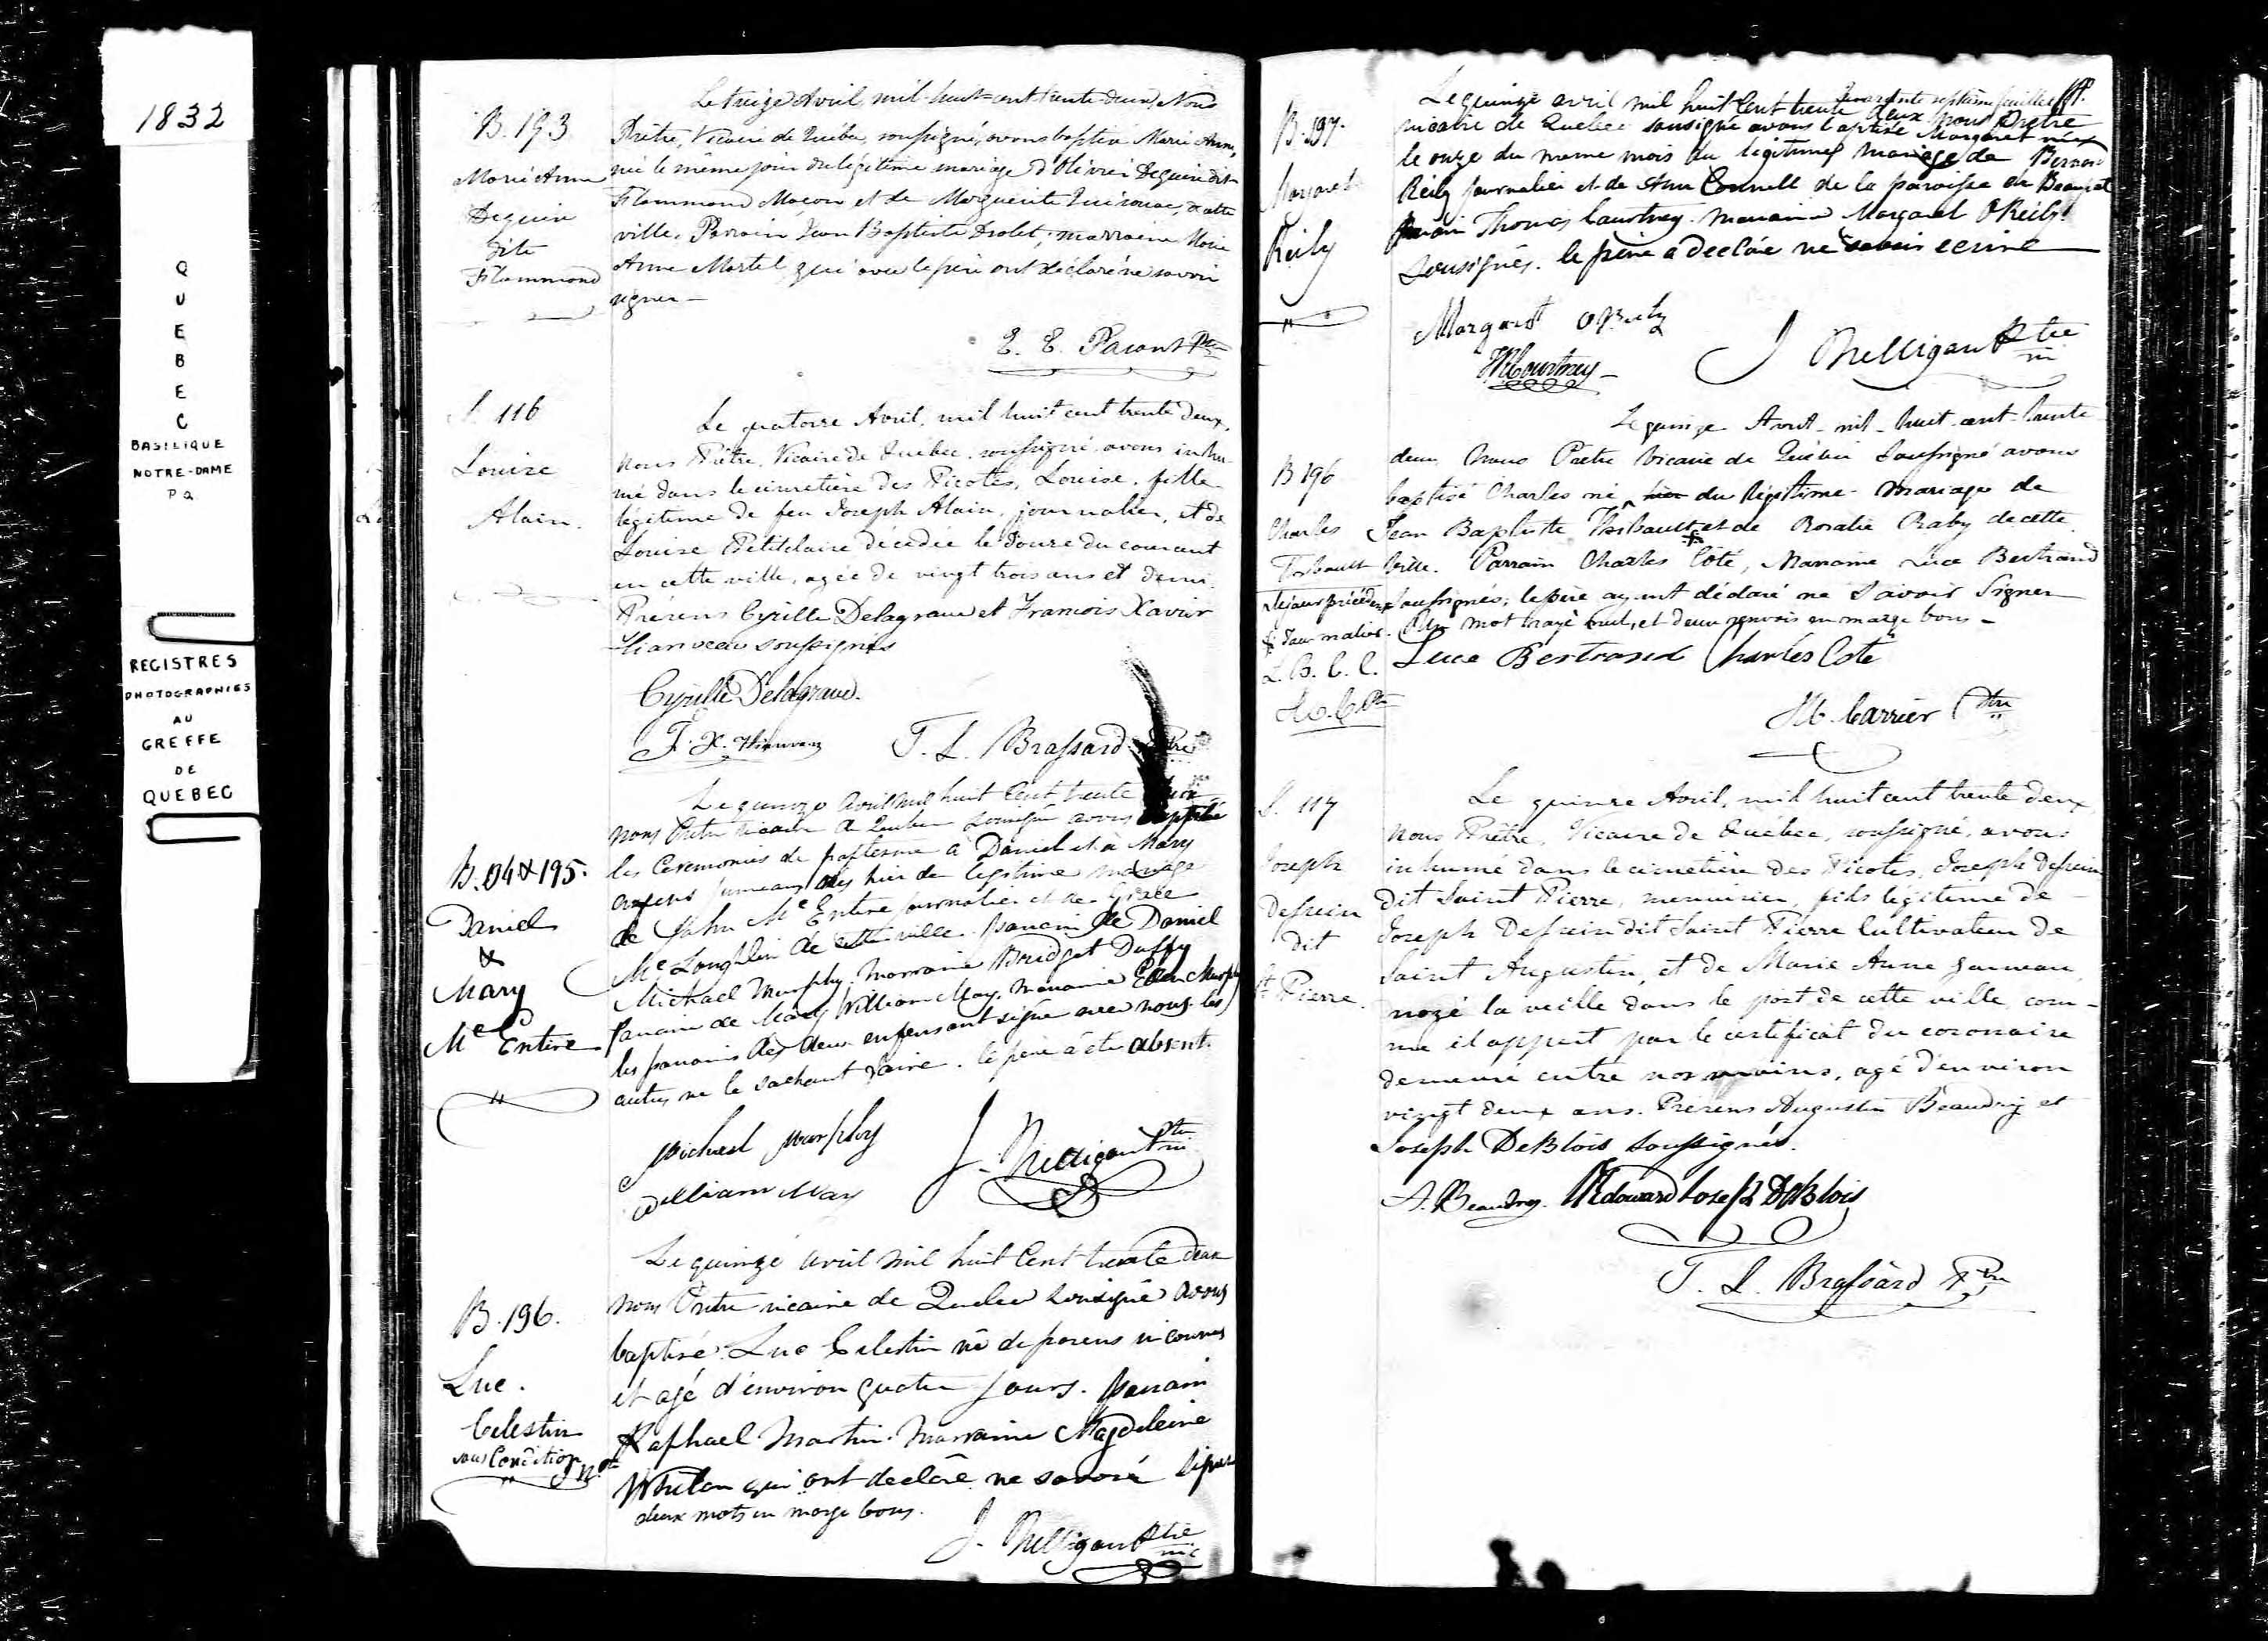 1832
QUEBEC
BASILIQUE
NOTRE-DAME
P Q
REGISTRES
PHOTOGRAPHIES
AU
GREFFE
DE
QUEBEC
B. 193
Marie Anne
Deguire
dite
Flammond
Le treize Avril, mil-huit-cent trente-deux, Nous
Prêtre, Vicaire de Québec, soussigné, avons baptisé Marie Anne,
née le même jour du légitime mariage d'Olivier Deguire dit
Flammond Maçon et de Marguerite de cette
ville. Parrain Jean Baptiste Drolet, marraine Marie
Anne Martel, qui avec le père ont déclaré ne savoir
signer
E. E. Parant Ptre
S. 116
Louise
Alain.
Le quatorze Avril, mil huit cent trente deux,
nous Prêtre, Vicaire de Québec, soussigné, avons inhu-
mé dans le cimetière des Picotés, Louise, fille
légitime de feu Joseph Alain, journalier, et de
Louise Petitclaire décédée le douze du courant
en cette ville, agée de vingt trois ans et demi.
Présens Cyrille Delagrave et Francois Xavier
soussignés
Cyrille Delagrave.
F. X.
T. L. Brassard Ptre
B. 194 & 195.
Daniel
&
Mary
Mc Entire
Le quinze avril mil huit Cent trente deux
nous Prêtre vicaire de Quebec sousigné avons suppléé
les Ceremonies de baptesme à Daniel et à Mary
enfens jumeaux nés hier du legitime mariage
de John Mc Entire journalier et de Grace
Mc Loughlin de cette ville. parrain de Daniel
Michael Murphy, marraine Bridget Duffy
Parrain de Mary William May, marraine Ellen Murphy
les parrains des deux enfens ont signé avec nous les
autres ne le sachant faire. le père a été absent.
Michael Murphy
William May
J. Nelligan Ptre
B. 196.
Luc.
Celestin
sous Condition
J N. Ptre
Le quinze avril mil huit Cent trente deux
nous Prêtre vicaire de Quebec sousigné avons
baptisé Luc Celestin né de parens inconnus
et agé d'environ quatre jours. parrain
Raphael Martin. Marraine Magdeleine
qui ont declaré ne savoir signer
deux mots en marge bons.
J. Nelligan Ptre vic
quarante septième feuillet
B. 197.
Margaret
Reily
Le quinze avril mil huit Cent trente deux nous Prêtre
vicaire de Quebec sousigné avons baptisé Margaret née
le onze du meme mois du legitime mariage de Bernard
Reily journalier et de Ann Connell de la paroisse de
parrain Thomas Courtney. marraine Margaret O Reily
sousignés. le père a declaré ne savoir ecrire
Margaret O Reily
J Nelligan Ptre
B 196
Charles
Thibault
le jour précédent
journalier.
L. B. C. C.
Le quinze Avril mil huit cent trente
deux Nous Prêtre Vicaire de Québec Soussigné avons
baptisé Charles né hier du légitime mariage de
Jean Baptiste Thibault et de Rosalie Raby de cette
ville. Parrain Charles Côté, Marraine Luce Bertrand
soussignés; le père ayant déclaré ne Savoir Signer
Un mot rayé nul, et deux renvois en marge bons
Luce Bertrand Charles Cote
Carrier Ptre
S. 117
Joseph
dit
St Pierre.
Le quinze Avril, mil huit cent trente deux,
nous Prêtre, Vicaire de Québec, soussigné, avons
inhumé dans le cimetière des Picotés, Joseph
dit Saint Pierre, menuisier, fils légitime de
Joseph dit Saint Pierre Cultivateur de
Saint Augustin, et de Marie Anne Garneau,
noyé la veille dans le port de cette ville, com-
me il appert par le certificat du coronaire
demeuré entre nos mains, agé d'environ
vingt deux ans. Présens Augustin Beaudry et
Joseph DeBlois soussignés.
A. Beaudry. Edouard Joseph DeBlois
T. L. Brassard Ptre